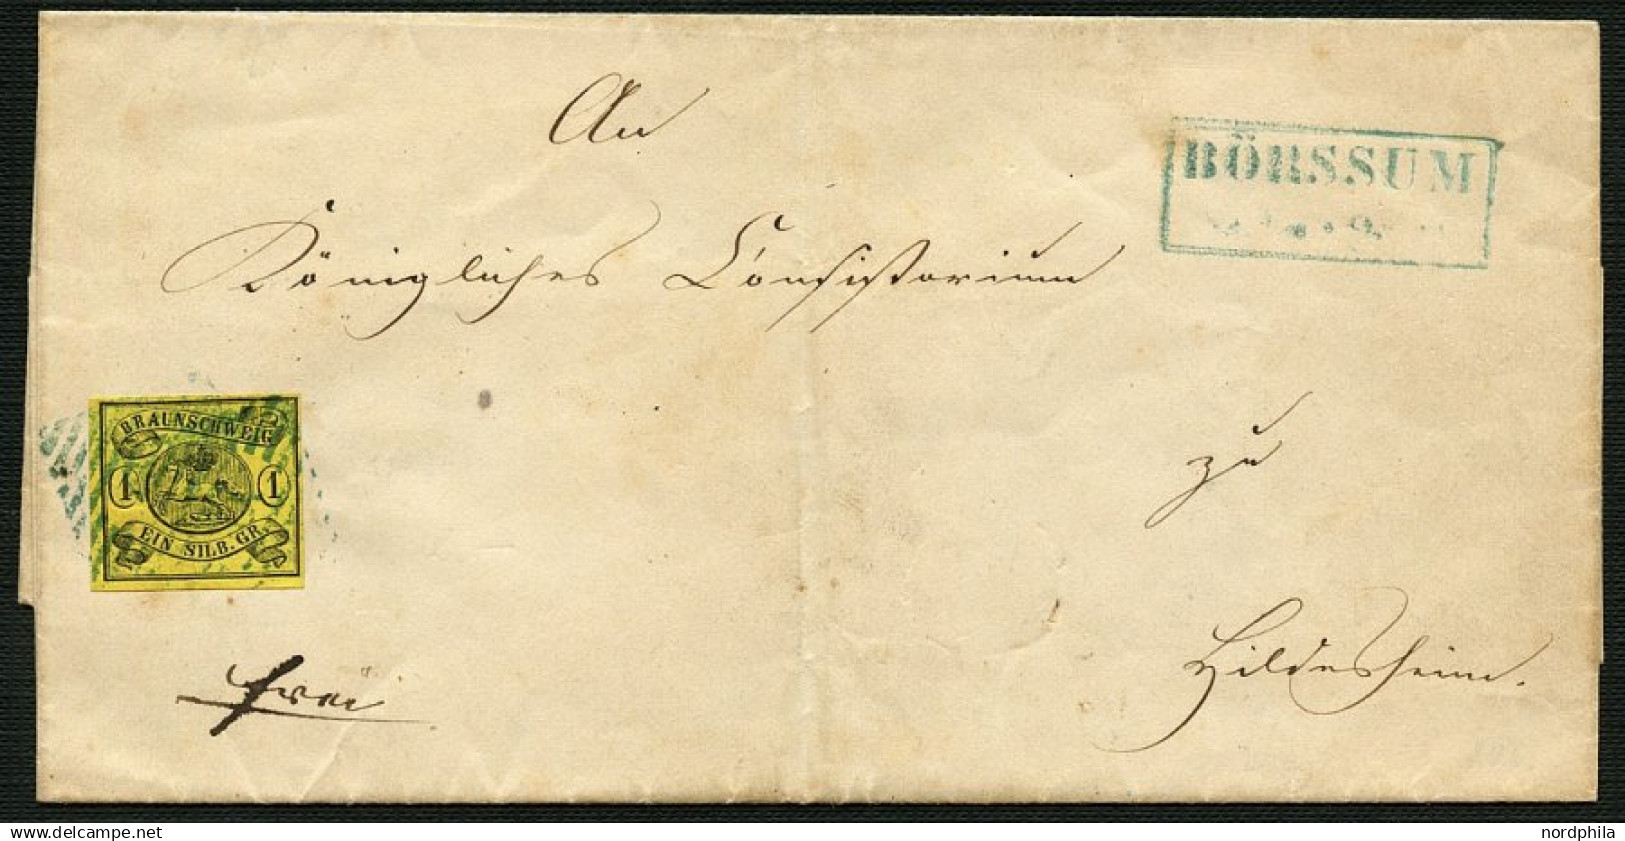 An
BÖRSSUM
Königliches Consistorium
BRAUNSCHWEIG
1 1
EIN SILB. GR.
zu
Hildesheim.
frei
www.delcampe.net
nordphila